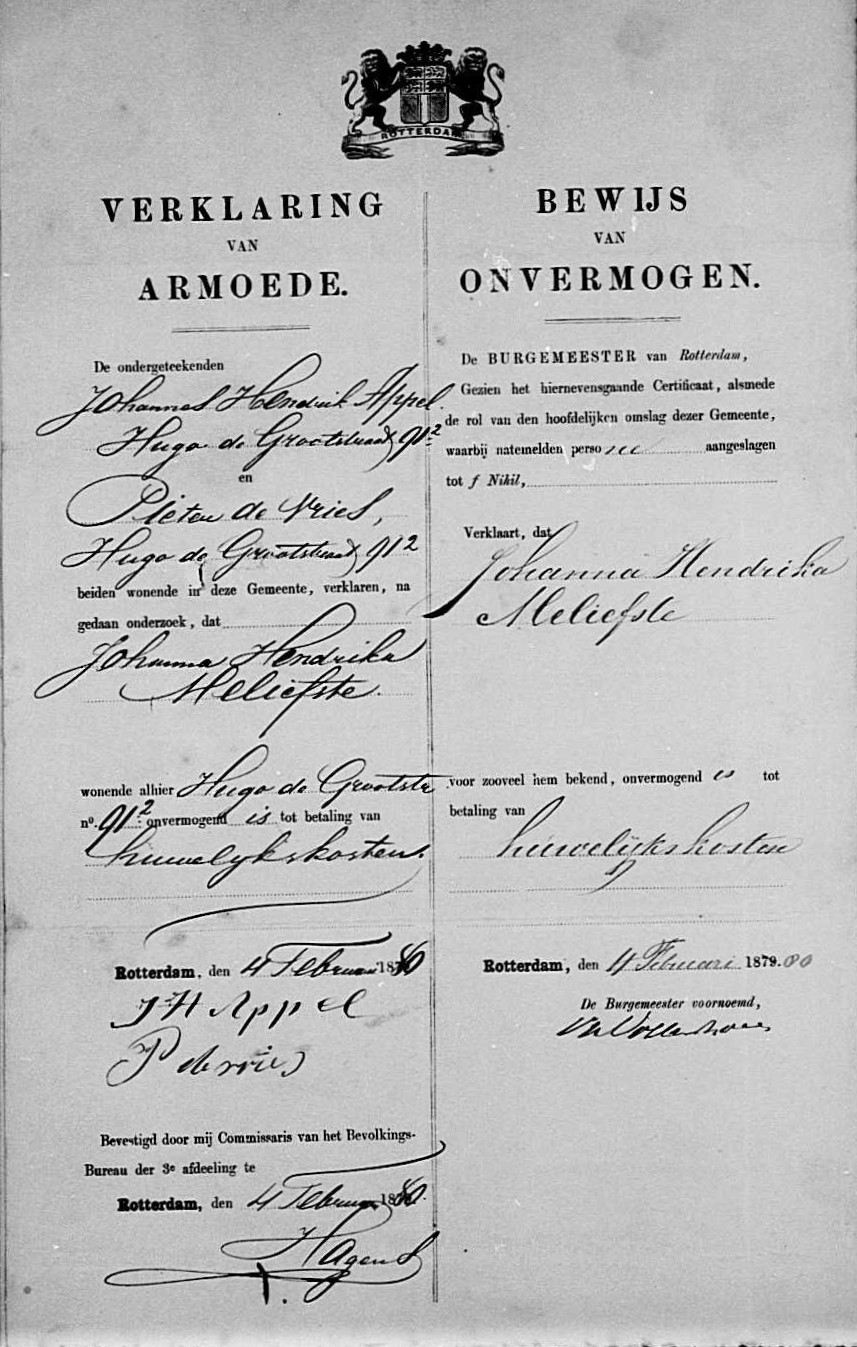 ROTTERDAM
VERKLARING
VAN
ARMOEDE.
De ondergeteekenden
Johannes Hendrik Appel.
Hugo de Grootstraat 91²
en
Pieter de Vries,
Hugo de Grootstraat 912
beiden wonende in deze Gemeente, verklaren, na
gedaan onderzoek, dat
Johanna Hendrika
Meliefste.
wonende alhier Hugo de Grootstr
nº. 91² onvermogend is tot betaling van
huwelijkskosten.
Rotterdam, den 4 Februari 1880
JH Appel
P de vries
Bevestigd door mij Commissaris van het Bevolkings-
Bureau der 3e afdeeling te
Rotterdam, den 4 Februari 1880.
Hagens
BEWIJS
VAN
ONVERMOGEN.
De BURGEMEESTER van Rotterdam,
Gezien het hiernevensgaande Certificaat, alsmede
de rol van den hoofdelijken omslag dezer Gemeente,
waarbij natemelden perso aangeslagen
tot f Nihil,
Verklaart, dat
Johanna Hendrika
Meliefste
voor zooveel hem bekend, onvermogend is tot
betaling van
huwelijkskosten
Rotterdam, den 4 Februari 1879.80
De Burgemeester voornoemd,